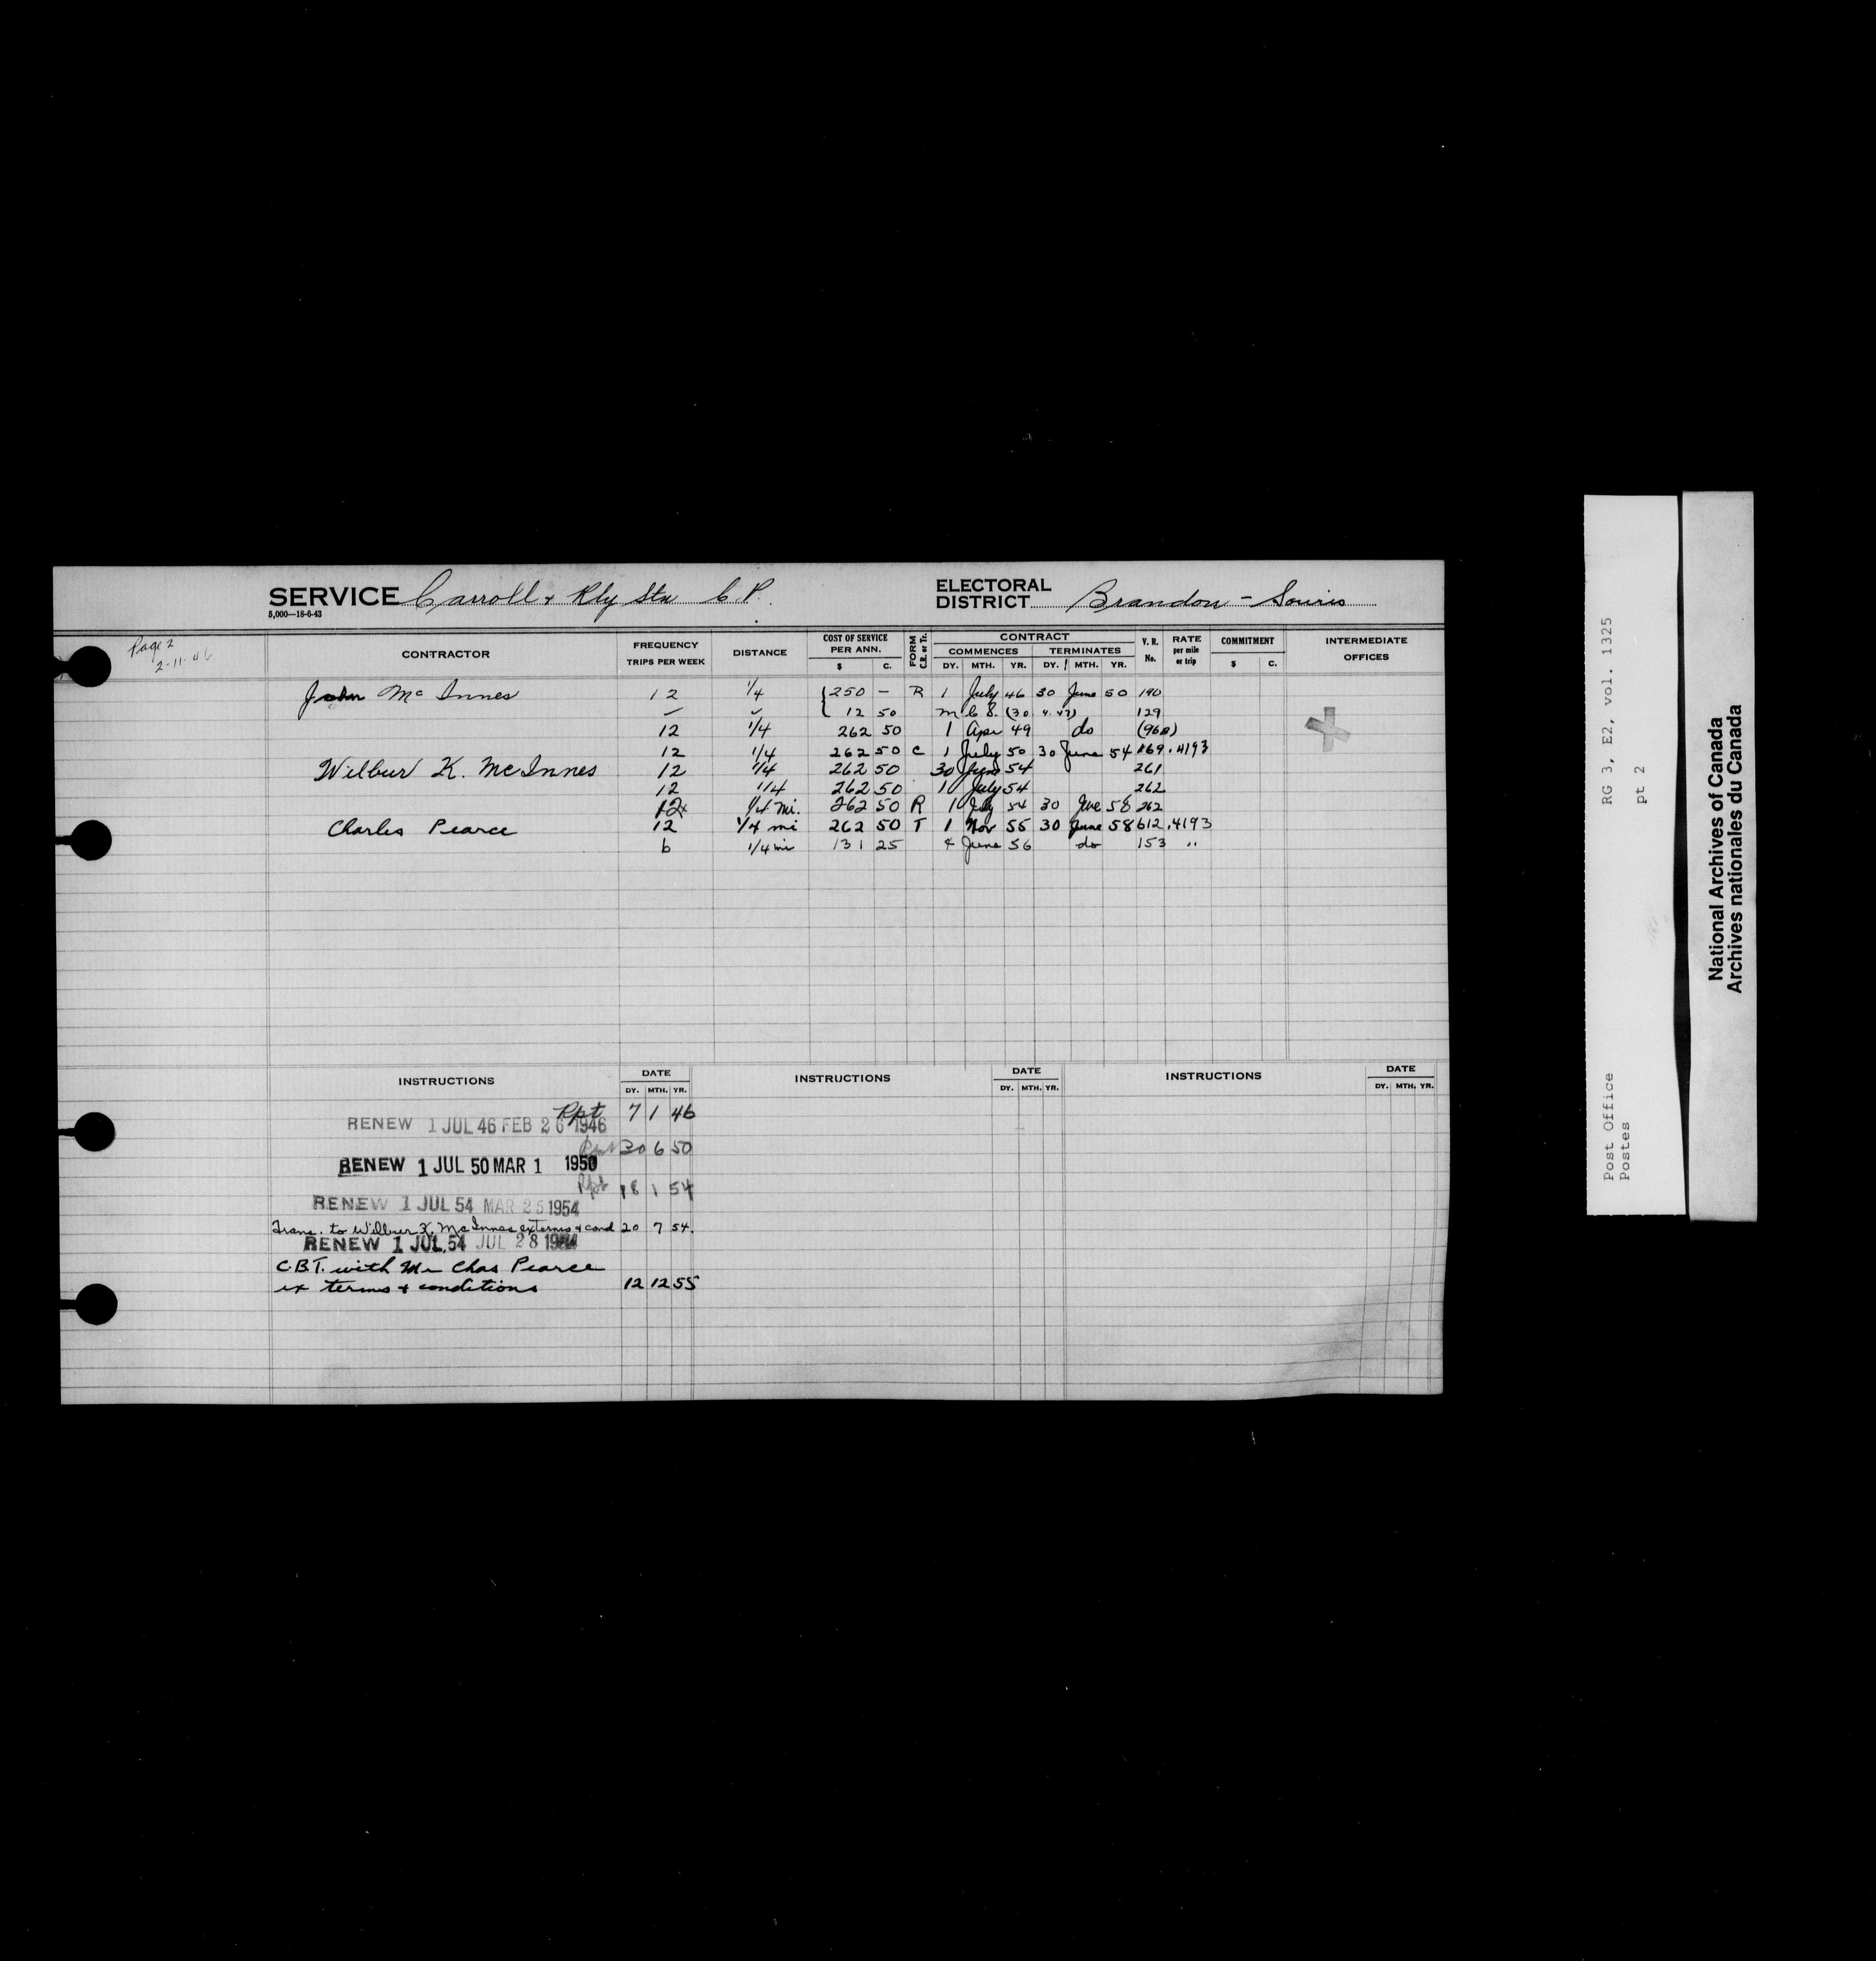 SERVICE Carroll & Rly Stn C.P.
5,000—18-6-43
ELECTORAL DISTRICT Brandon - Souris
Page 2
2-11-46
CONTRACTOR FREQUENCY TRIPS PER WEEK DISTANCE COST OF SERVICE PER ANN. $ C. FORM C.R. or Tr. CONTRACT COMMENCES DY. MTH. YR. TERMINATES DY. MTH. YR. V. R. No. RATE per mile or trip COMMITMENT $ C. INTERMEDIATE OFFICES
John McInnes 12 1/4 250 — R 1 July 46 30 June 50 190
12 50 M C 8. (30 4.47) 129
12 1/4 262 50 1 Apr 49 do (960)
12 1/4 262 50 C 1 July 50 30 June 54 169 .4193
Wilbur K. McInnes 12 1/4 262 50 30 June 54 261
12 1/4 262 50 1 July 54 262
12x 1/4 mi. 262 50 R 1 July 54 30 June 58 262
Charles Pearce 12 1/4 mi 262 50 T 1 Nov 55 30 June 58 612 .4193
6 1/4 mi 131 25 4 June 56 do 153 "
INSTRUCTIONS DATE DY. MTH. YR. INSTRUCTIONS DATE DY. MTH. YR. INSTRUCTIONS DATE DY. MTH. YR.
Rpt 7 1 46
RENEW 1 JUL 46 FEB 26 1946
Rpt 30 6 50
RENEW 1 JUL 50 MAR 1 1950
Rpt 18 1 54
RENEW 1 JUL 54 MAR 25 1954
Trans. to Wilbur K. McInnes ex terms & cond 20 7 54.
RENEW 1 JUL 54 JUL 28 1954
C.B.T. with Mr Chas Pearce
ex terms & conditions 12 12 55
Post Office RG 3, E2, vol. 1325
Postes pt 2
National Archives of Canada
Archives nationales du Canada